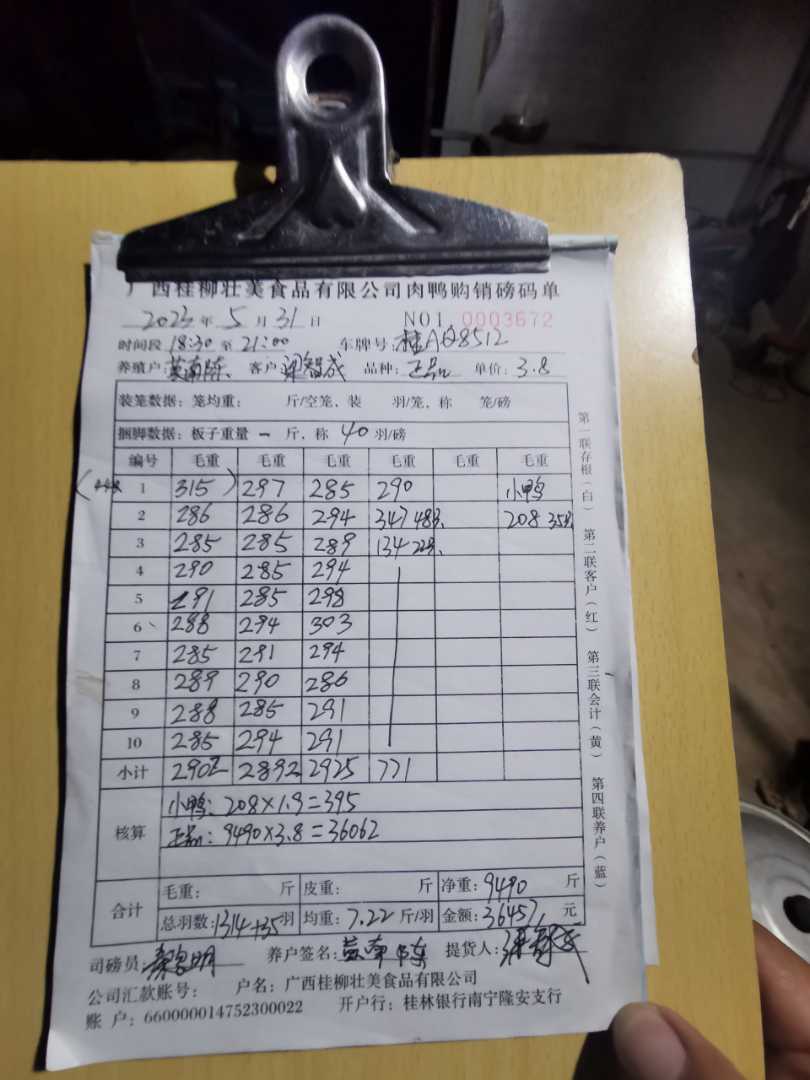 广西桂柳壮美食品有限公司肉鸭购销磅码单
2023年 5月 31日 NO1 0003672
时间段 18:30 至 21:00 车牌号: 桂AQ8512
养殖户: 黄南陈 客户: 梁智成 品种: 正品 单价: 3.8
装笼数据: 笼均重: 斤/空笼、装 羽/笼、称 笼/磅
捆脚数据: 板子重量 一 斤、称 40 羽/磅
编号 毛重 毛重 毛重 毛重 毛重 毛重
1 (315) 297 285 290 小鸭
2 286 286 294 347 48只 208 35只
3 285 285 289 134 22只
4 290 285 294
5 291 285 298
6 288 294 303
7 285 291 294
8 289 290 286
9 288 285 291
10 285 294 291
小计 2902 2892 2925 771
核算 小鸭: 208×1.9=395
正品: 9490×3.8=36062
合计 毛重: 斤 皮重: 斤 净重: 9490 斤
总羽数: 1314+35羽 均重: 7.22 斤/羽 金额: 36457 元
司磅员: 养户签名: 黄南陈 提货人:
公司汇款账号: 户名: 广西桂柳壮美食品有限公司
账户: 660000014752300022 开户行: 桂林银行南宁隆安支行
第一联存根(白) 第二联客户(红) 第三联会计(黄) 第四联养户(蓝)